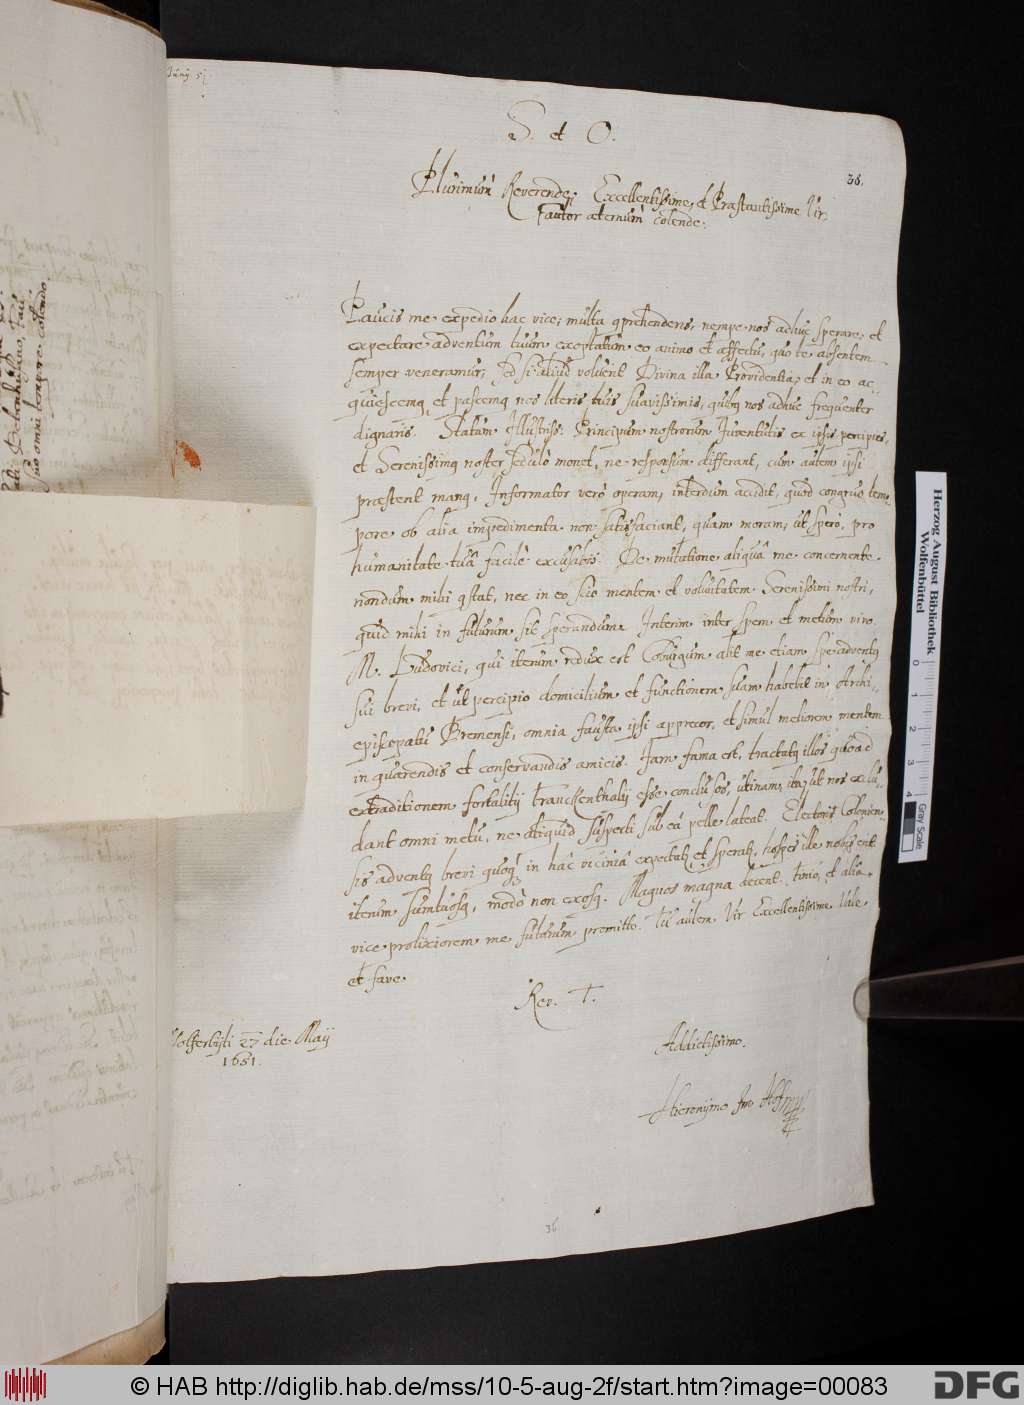 Junij. 5
S. et O.
38.
Plurimum Reverende, Excellentissime, et Præstantissime Vir,
Fautor æternum colende.
Paucis me expedio hac vice, multa comprehendens, nempe nos adhuc sperare, et
expectare adventum tuum exoptatum eo animo et affectu, quo te absentem
semper veneramur, sed si aliud voluerit Divina illa Providentia, et in eo ac-
quiescemq et pascemq nos literis tuis suavissimis, quibq nos adhuc frequenter
dignaris. Statum Illustriss: Principum nostrorum Juventutis ex ipsis percipies,
et Serenissimq noster sedulò monet, ne responsum differant, cum autem ipsi
præstent manq, Informator verò operam, interdum accidit, quod congruo tem-
pore ob alia impedimenta non satisfaciant, quam moram, ut spero, pro
humanitate tuâ facilè excusabis. De mutatione aliquâ me concernente
nondum mihi constat, nec in eo scio mentem et voluntatem Serenissimi nostri,
quid mihi in futurum sit sperandum. Interim inter spem et metum vivo.
M. Ludovici, qui iterum redux est Coburgum alit me etiam spe adventq
sui brevi, et ut percipio domicilium et functionem suam habebit in Archi-
episcopatu Bremensi, omnia fausta ipsi apprecor, et simul meliorem mentem
in quærendis et conservandis amicis. Jam fama est, tractatq illos quoad
extraditionem fortalitij Franckenthalij esse conclusos, utinam ita, ut nos exclu-
dant omni metu, ne aliquid suspecti sub eâ pelle lateat. Electoris Colonien-
sis adventq brevi quoq in hac viciniâ expectatr et speratr, hospes ille nobis erit
iterum sumtuosq, modò non exosq. Magnos magna decent. Finio, et aliâ
vice prolixiorem me futurum promitto. Tu autem Vir Excellentissime Vale
et fave.
Rev. T.
Wolferbyti 27 die Maij
1651.
Addictissimo.
Hieronymo Im Hof
36
Herzog August Bibliothek
Wolfenbüttel
0 1 2 3 4
Gray Scale
© HAB http://diglib.hab.de/mss/10-5-aug-2f/start.htm?image=00083
DFG